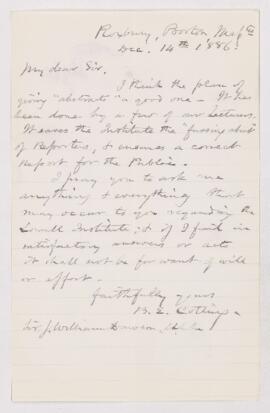 Roxbury, Boston Mass
Dec. 14th 1886.
My dear Sir.
I think the plan of
giving "abstracts" a good one - It has
been done by a few of our lecturers.
It saves the Institute the "fussing about"
of Reporters, & ensures a correct
Report for the Public.
I pray you to ask me
anything & everything that
may occur to you regarding the
Lowell Institute; & if I fail in
satisfactory answers or acts
it shall not be for want of will
or effort.
faithfully yours
B. E. Cotting
Sir J. William Dawson,